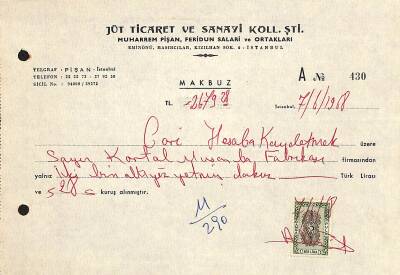 JÜT TİCARET VE SANAYİ KOLL. ŞTİ.
MUHARREM PİŞAN, FERİDUN SALARİ ve ORTAKLARI
EMİNÖNÜ, HASIRCILAR, KIZILHAN SOK. 4 - İSTANBUL
TELGRAF : PİŞAN - İstanbul
TELEFON : 22 52 73 - 27 92 50
SİCİL No. : 94000 / 39272
MAKBUZ
A № 430
TL. 2679 28
İstanbul, 7/6/1968
Cari Hesaba Kaydetmek üzere
Sayın Kartal Fabrikası firmasından
yalnız iki bin altıyüz yetmiş dokuz Türk Lirası
ve 528 kuruş alınmıştır.
M/290